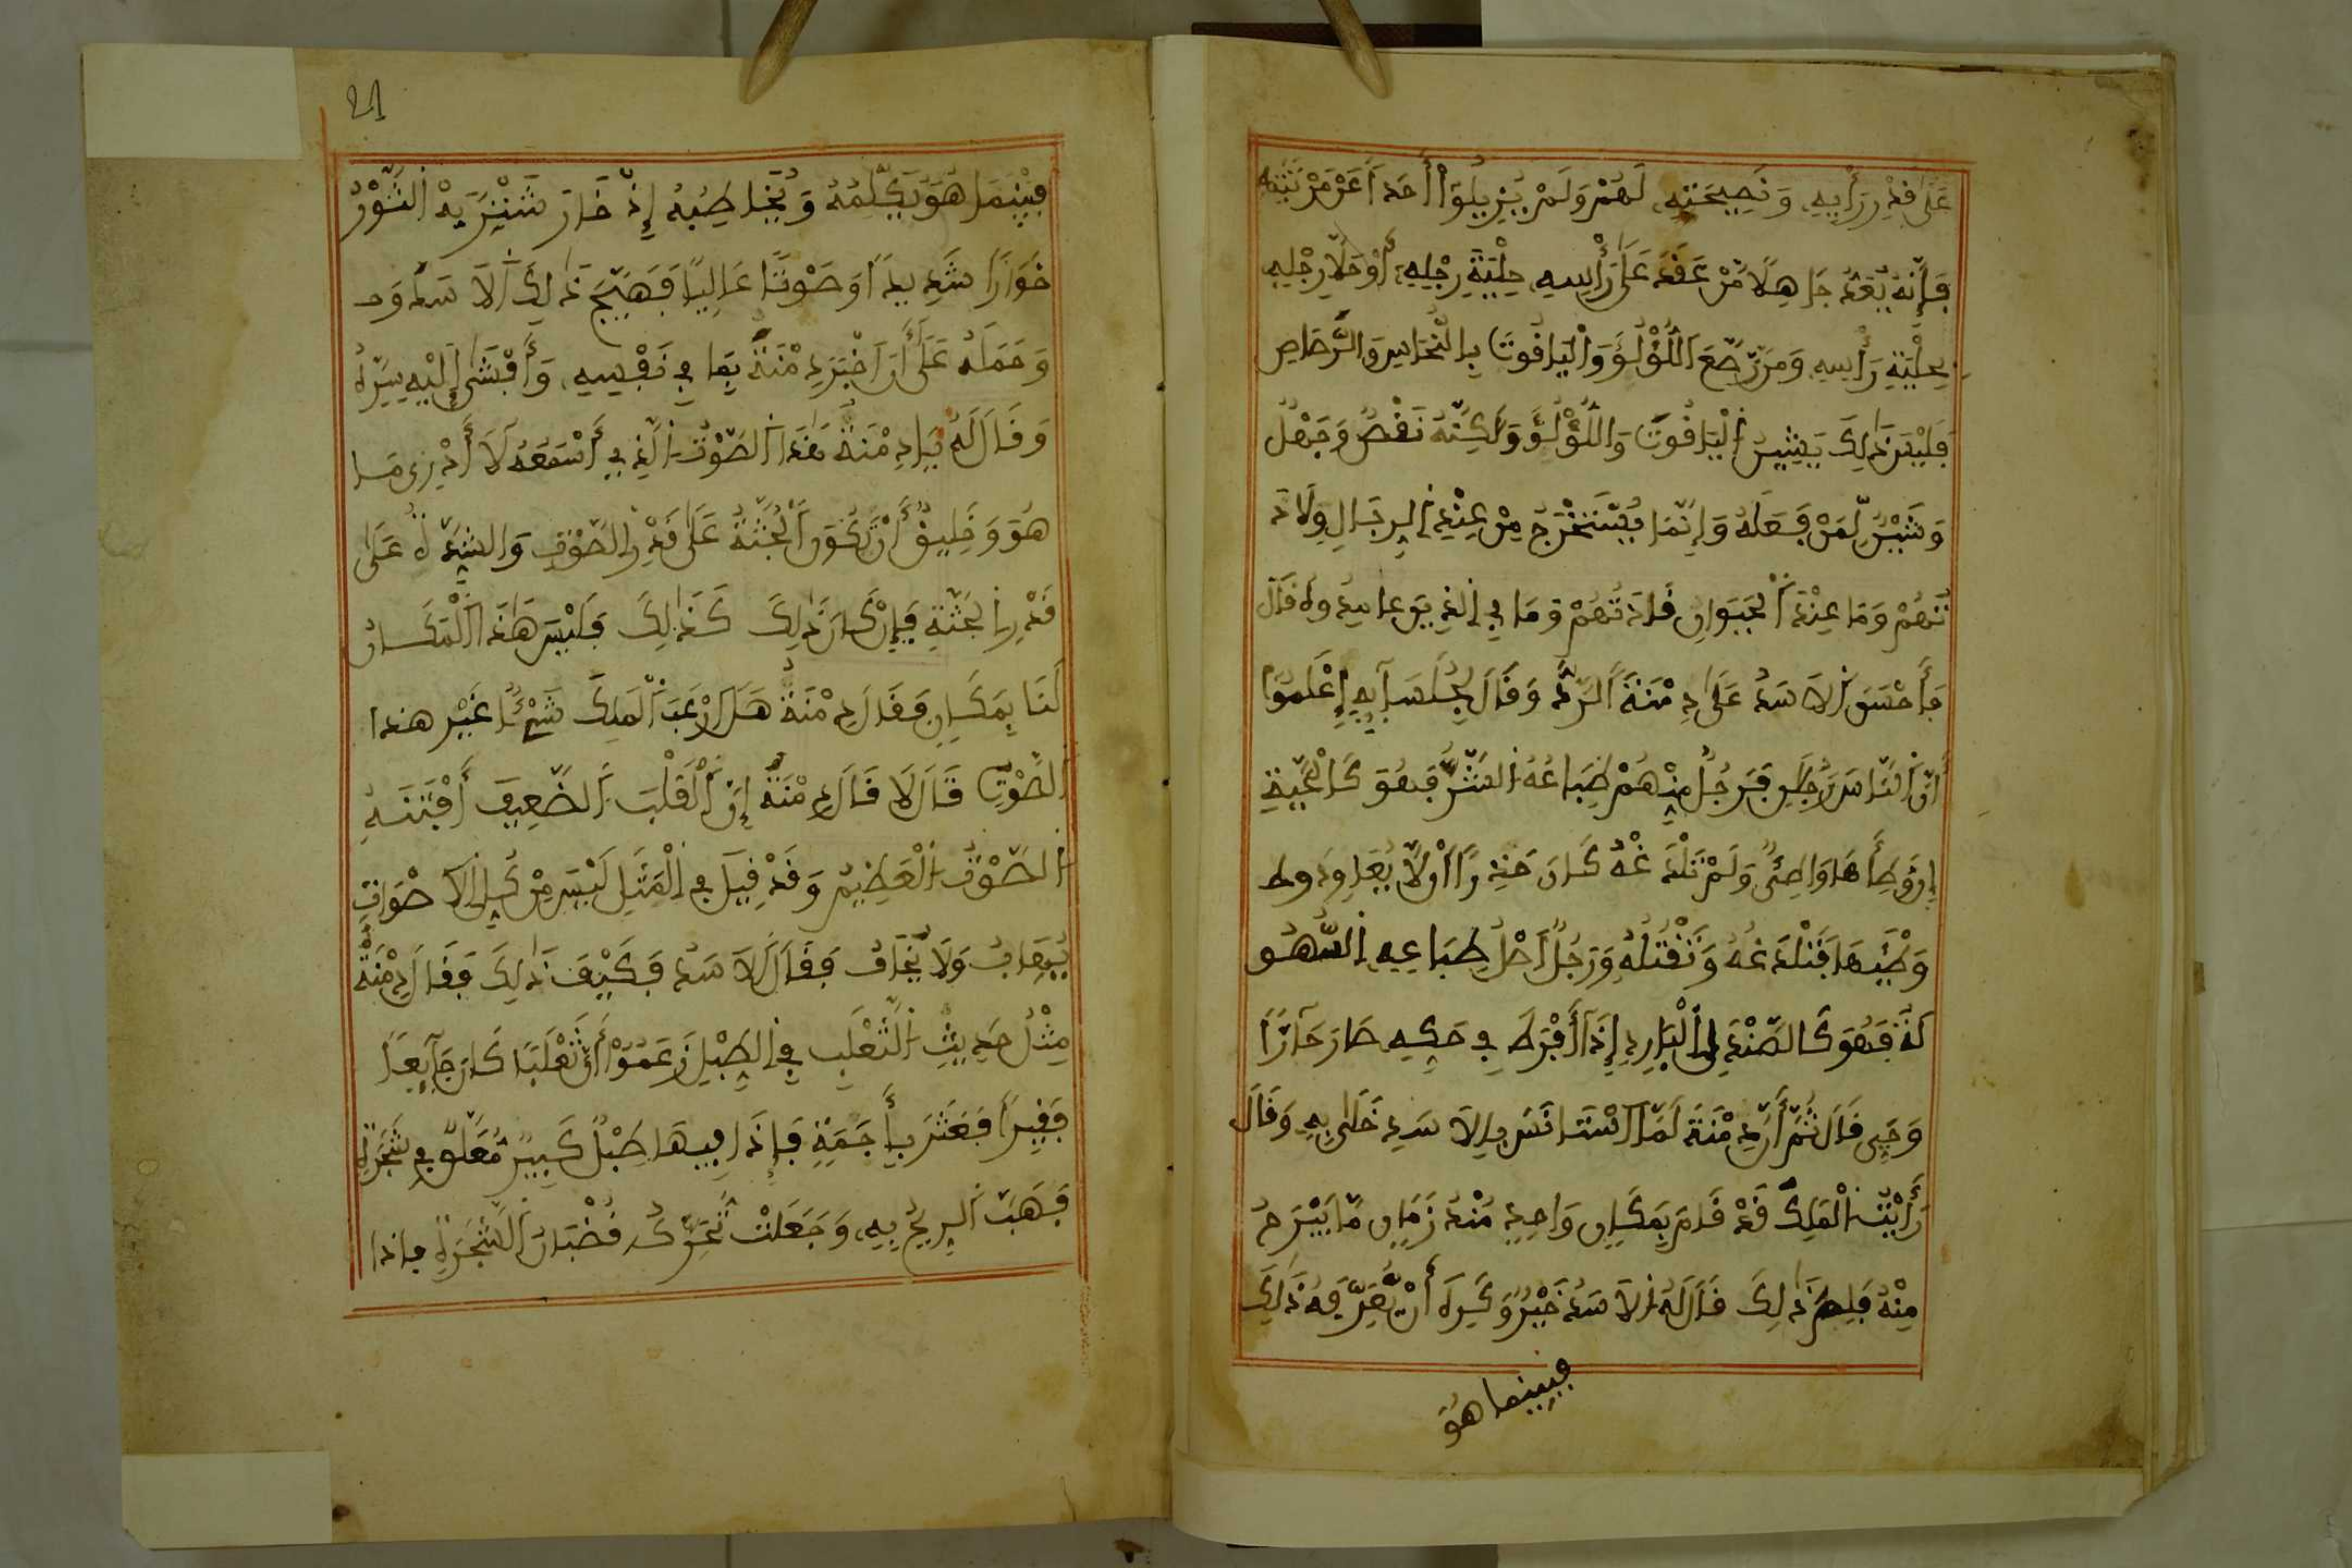 عَلَى قَدْرِ رَأْيِهِ وَنَصِيحَتِهِ لَهُمْ وَلَمْ يُزِيلُوا أَحَداً عَنْ مَرْتَبَتِهِ
فَإِنَّهُ يُعَدُّ جَاهِلًا مَّنْ عَقَدَ عَلَى رَأْسِهِ حِلْيَةَ رِجْلِهِ أَوْ حَلَّا رِجْلَيْهِ
بِحِلْيَةِ رَأْسِهِ وَمَن رَّصَّعَ اللُّؤْلُؤَ وَالْيَاقُوتَ بِالنُّحَاسِ وَالرَّصَاصِ
فَلَيْسَ ذَلِكَ يَشِينُ الْيَاقُوتَ وَاللُّؤْلُؤَ وَلَكِنَّهُ نَقْصٌ وَجَهْلٌ
وَشَيْنٌ لِّمَنْ فَعَلَهُ وَإِنَّمَا يُسْتَخْرَجُ مِنْ عِنْدِ الرِّجَالِ وُلَاةَ
تُهُمْ وَمَا عِنْدَ الْجُنْدِ قَادَتُهُمْ وَمَا فِي الدِّينِ عالميه قال
فَأَحْسَنَ الاَسَدُ عَلَى دِمْنَةَ الرَّدَّ وَقَالَ لِجُلَسَآئِهِ اِعْلَمُوا
أَنَّ النَّاسَ رَجُلَانِ فَرَجُلٌ مِّنْهُمْ طِبَاعُهُ الشَّرُّ فَهُوَ كَالْحَيَّةِ
إِنْ وَطِأَهَا وَاطِئٌ وَلَمْ تَلْدَغْهُ كَانَ جَدِيرًا أَنْ لاَّ يُعَاوِدَ وط
وَطْئِهَا فَتَلْدَغُهُ وَتَقْتُلُهُ وَرَجُلٌ أَصْلُ طِبَاعِهِ السُّهُو
لَةُ فَهُوَ كَالصَّنْدَلِ الْبَارِدِ إِذَا أُفْرِطَ فِي حَكِّهِ صَارَ حَآرًّا
وَحِينَ قَالَ ثُمَّ أَنَّ دِمْنَةَ لَمَّا اسْتَانَسَ بِالاَسَدِ خَلَى بِهِ وَقَالَ
رَأَيْتُ الْمَلِكَ قَدْ قَامَ بِمَكَانٍ وَاحِدٍ مُنْذُ زَمَانٍ مَّا يَبْرَحُ
مِنْهُ فَلِمَ ذَلِكَ قَالَ لَهُ الاَسَدُ خَيْرٌ وَكَرِهَ أَنْ يُّعَرِّفَهُ ذَلِكَ
فبينما هُوَ
21
فَبَيْنَمَا هُوَ يُكَلِّمُهُ وَيُخَاطِبُهُ إِذْ خَارَ شَنْزَبَهْ الثَّوْرُ
خَوَارًا شَدِيدًا وَصَوْتًا عَالِيًا فَهَيَّجَ ذَلِكَ الاَسَدَ وَ
وَحَمَلَهُ عَلَى أَنْ اَخْبَرَ دِمْنَةَ بِمَا فِي نَفْسِهِ وَأَفْشَى إِلَيْهِ سِرَّهُ
وَقَالَ لَهُ يَا دِمْنَةُ هَذَا الصَّوْتُ الَّذِي أَسْمَعُهُ لَا أَدْرِي مَا
هُوَ وَخَلِيقٌ أَنْ تَكُونَ الْجُثَّةُ عَلَى قَدْرِ الصَّوْتِ وَالشِّدَّةُ عَلَى
قَدْرِ الْجُثَّةِ فَإِنْ كَانَ ذَلِكَ كَذَلِكَ فَلَيْسَ هَذَا الْمَكَانُ
لَنَا بِمَكَانٍ فَقَالَ دِمْنَةُ هَلَ ارْعَبَ الْمَلِكَ شَيْءٌ غَيْرُ هذا
الصَّوْتِ قَالَ لَا قَالَ دِمْنَةُ إِنَّ الْقَلْبَ الضَّعِيفَ أَفْتَنَهُ
الصَّوْتُ الْعَظِيمُ وَقَدْ قِيلَ فِي الْمَثَلِ لَيْسَ مِنْ كُلِّ الاَصْوَاتِ
يُهَابُ وَلَا يُخَافُ فَقَالَ الاَسَدُ فَكَيْفَ ذَلِكَ فَقَالَ دِمْنَةُ
مِثْلُ حَدِيثِ الثَّعْلَبِ فِي الطَّبْلِ زَعَمُوا أَنَّ ثَعْلَبًا كَانَ جَآئِعًا
فَقِيرًا فَعَثَرَ بِأَجَمَةٍ فَإِذَا فِيهَا طَبْلٌ كَبِيرٌ مُّعَلَّقٌ فِي شَجَرَةٍ
فَهَبَّتِ الرِّيحُ بِهِ وَجَعَلَتْ تُحَرِّكُ قُضْبَانَ الشَّجَرَةِ فإذا